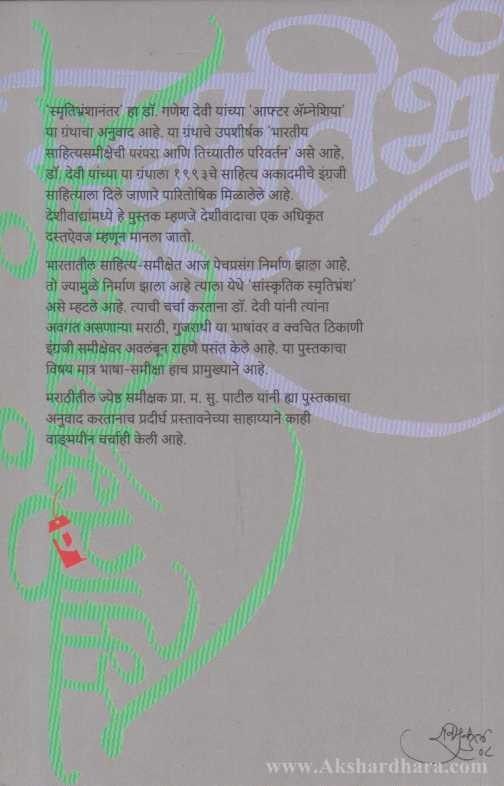 'स्मृतिभ्रंशानंतर' हा डॉ. गणेश देवी यांच्या 'आफ्टर ॲम्नेशिया'
या ग्रंथाचा अनुवाद आहे. या ग्रंथाचे उपशीर्षक 'भारतीय
साहित्यसमीक्षेची परंपरा आणि तिच्यातील परिवर्तन' असे आहे,
डॉ. देवी यांच्या या ग्रंथाला १९९३चे साहित्य अकादमीचे इंग्रजी
साहित्याला दिले जाणारे पारितोषिक मिळालेले आहे.
देशीवाद्यांमध्ये हे पुस्तक म्हणजे देशीवादाचा एक अधिकृत
दस्तऐवज म्हणून मानला जातो.
भारतातील साहित्य-समीक्षेत आज पेचप्रसंग निर्माण झाला आहे,
तो ज्यामुळे निर्माण झाला आहे त्याला येथे 'सांस्कृतिक स्मृतिभ्रंश'
असे म्हटले आहे. त्याची चर्चा करताना डॉ. देवी यांनी त्यांना
अवगत असणाऱ्या मराठी, गुजराथी या भाषांवर व क्वचित ठिकाणी
इंग्रजी समीक्षेवर अवलंबून राहणे पसंत केले आहे. या पुस्तकाचा
विषय मात्र भाषा-समीक्षा हाच प्रामुख्याने आहे.
मराठीतील ज्येष्ठ समीक्षक प्रा. म. सु. पाटील यांनी ह्या पुस्तकाचा
अनुवाद करतानाच प्रदीर्घ प्रस्तावनेच्या साहाय्याने काही
वाङ्मयीन चर्चाही केली आहे.
०८
www.Akshardhara.com